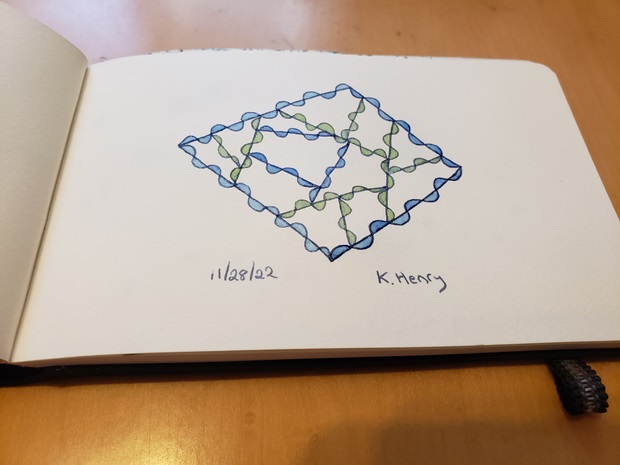 11/28/22
K. Henry